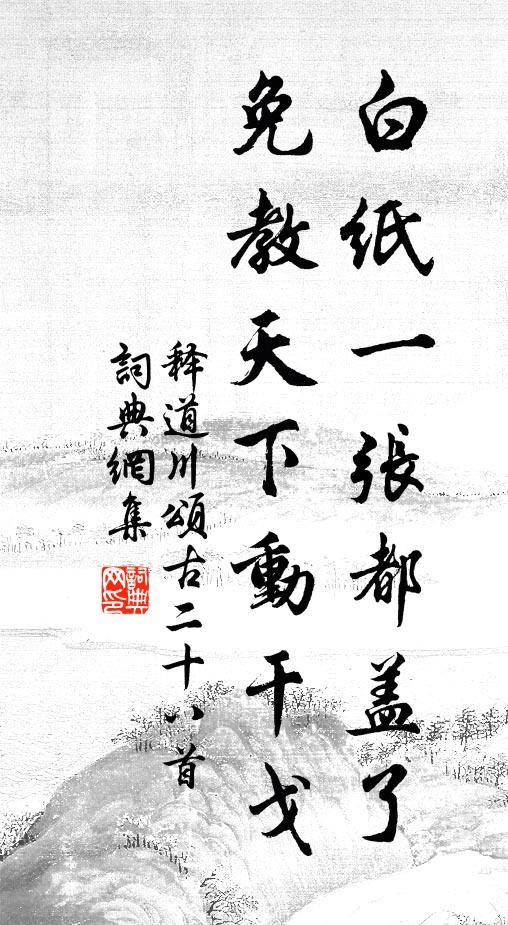 白紙一張都盖了
免教天下動干戈
释道川頌古二十八首
詞典網集
詞典
网印